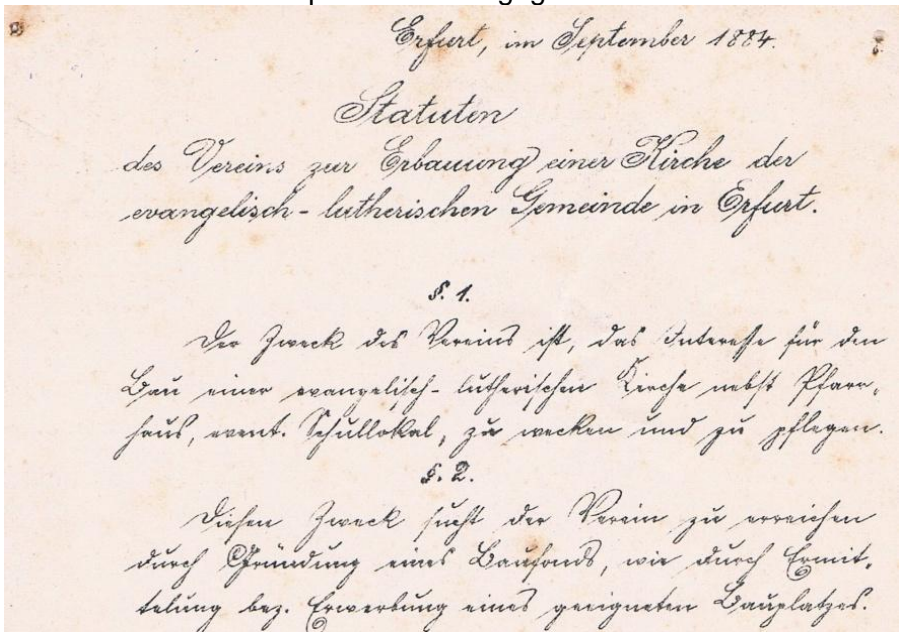 Erfurt, im September 1884.
Statuten
des Vereins zur Erbauung einer Kirche der
evangelisch-lutherischen Gemeinde in Erfurt.
§. 1.
Der Zweck des Vereins ist, das Interesse für den
Bau einer evangelisch-lutherischen Kirche nebst Pfarr-
haus, event. Schullokal, zu wecken und zu pflegen.
§. 2.
Diesen Zweck sucht der Verein zu erreichen
durch Gründung eines Baufonds, wie durch Ermit-
telung bez. Erwerbung eines geeigneten Bauplatzes.